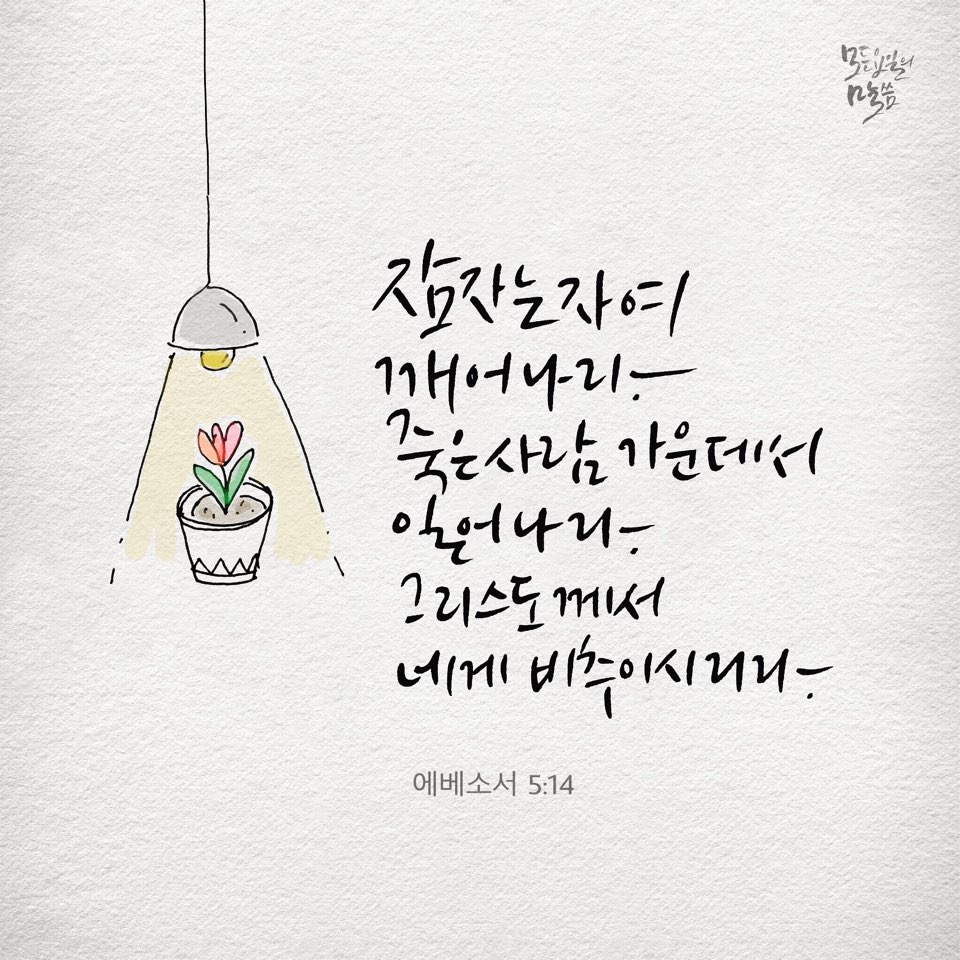 모든요일의
말씀
잠자는자여
깨어나라
죽은사람 가운데서
일어나라
그리스도께서
네게 비추이시리라
에베소서 5:14